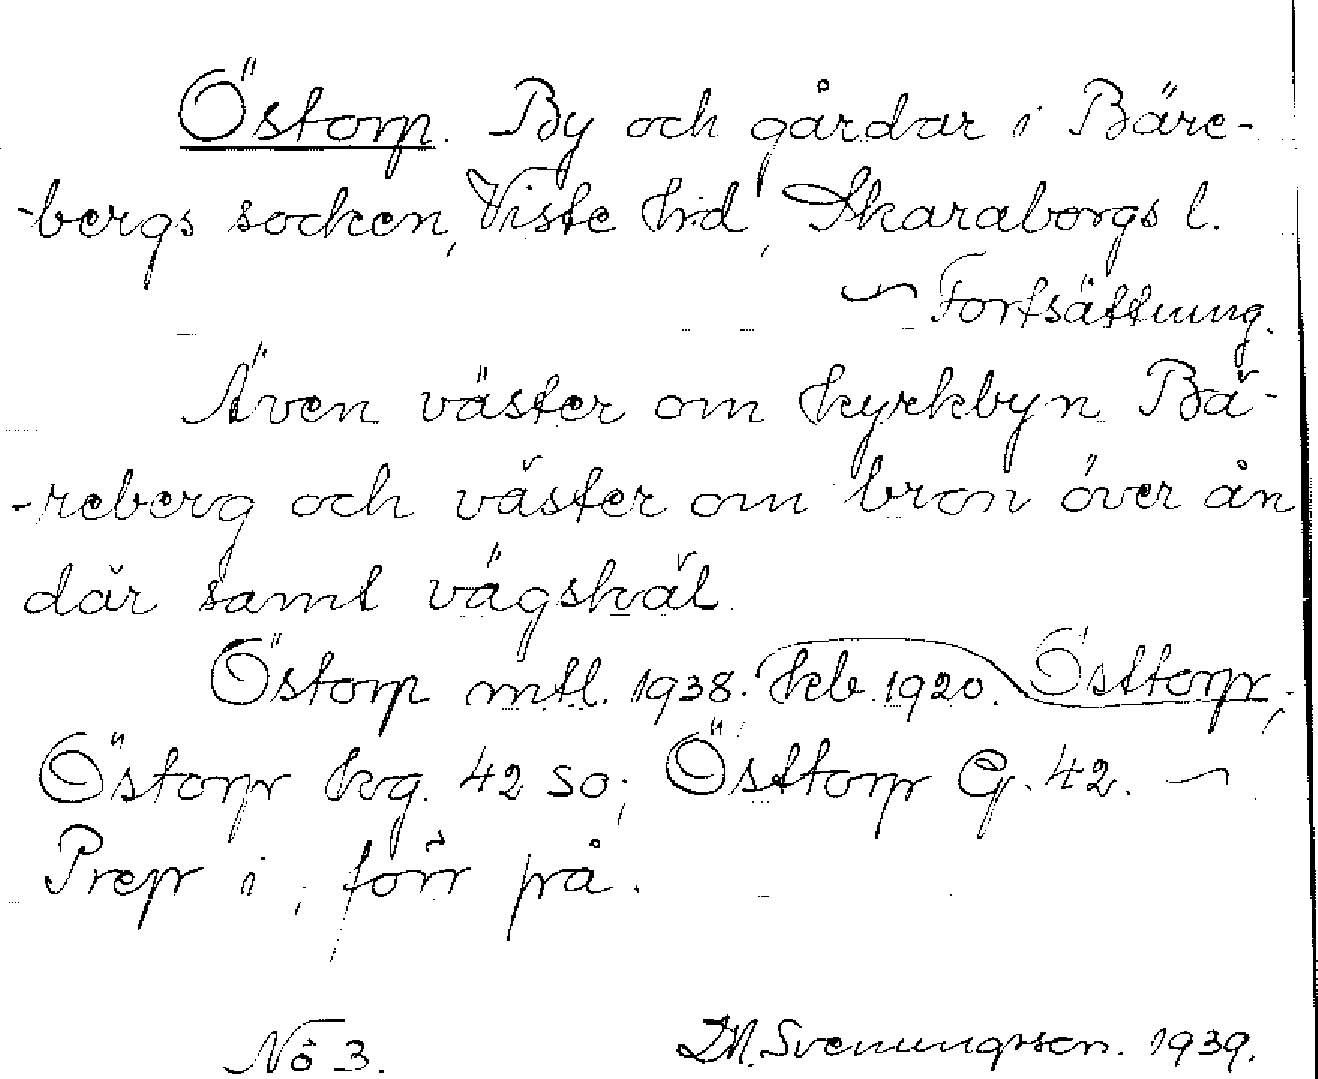 Östorp. By och gårdar i Bäre-
-bergs socken, Viste hd, Skaraborgs l.
Fortsättning.
Även väster om kyrkbyn Bä-
-reberg och väster om bron över ån
där samt vägskäl.
Östorp mtl. 1938. kb. 1920. Östtorp;
Östorp kg. 42 SO; Östtorp G. 42.
Prep i, förr på.
No 3. Svenungsson. 1939.